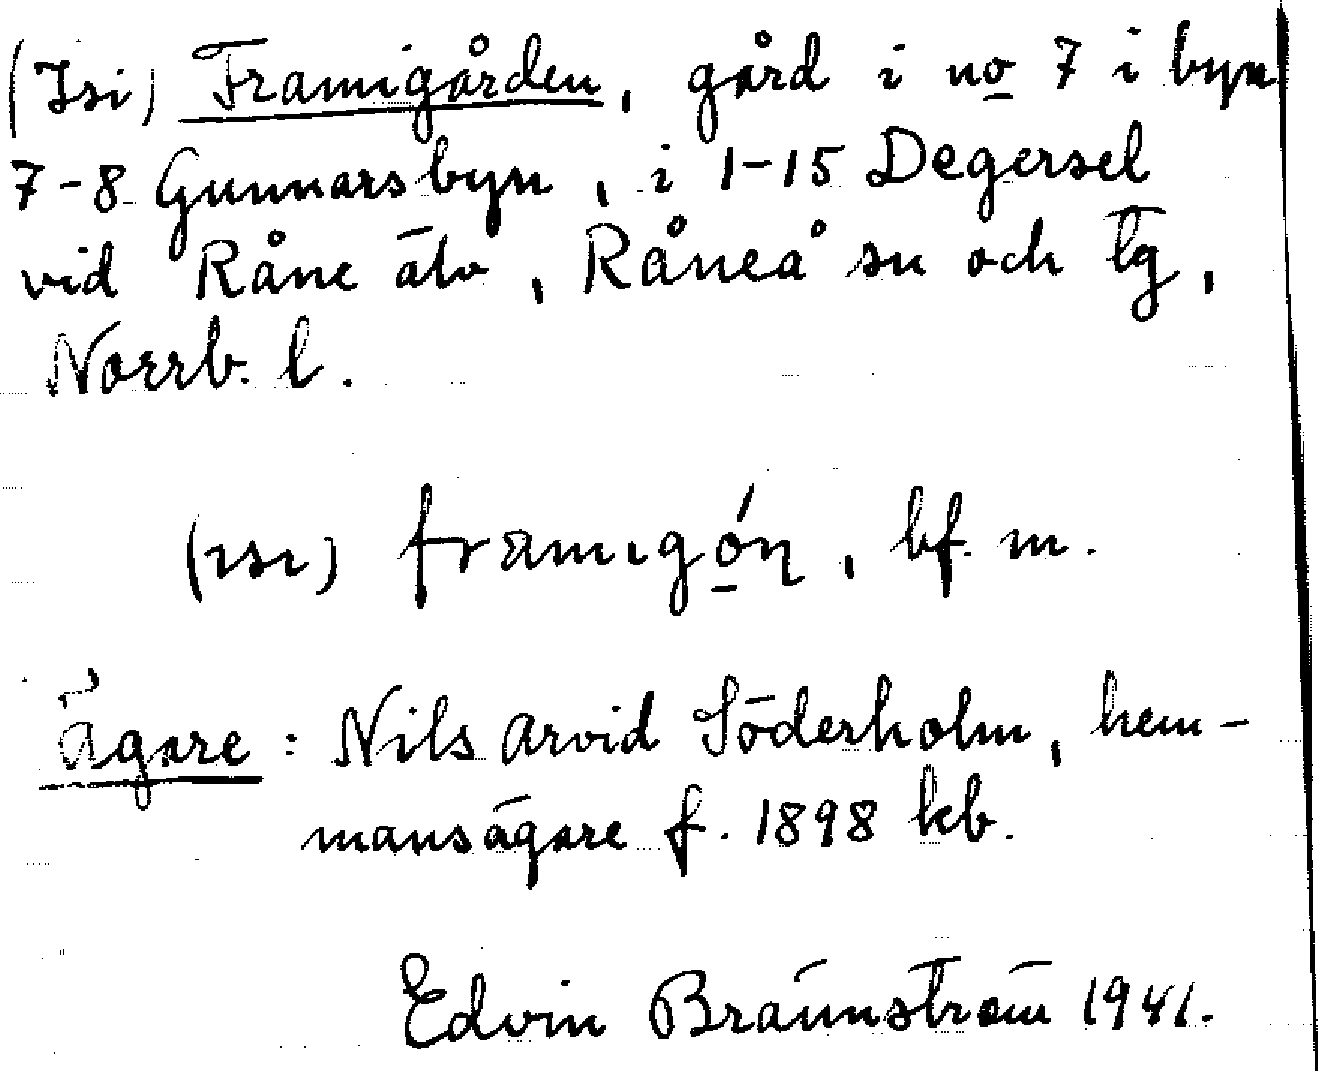 (Isi) Framigården, gård i no 7 i byn
7-8 Gunnarsbyn, i 1-15 Degersel
vid Råne älv, Råneå sn och tg,
Norrb. l.
(ısı) framıgǫ́n, bf. m.
Ägare: Nils Arvid Söderholm, hem-
mansägare f. 1898 kb.
Edvin Brännström 1941.